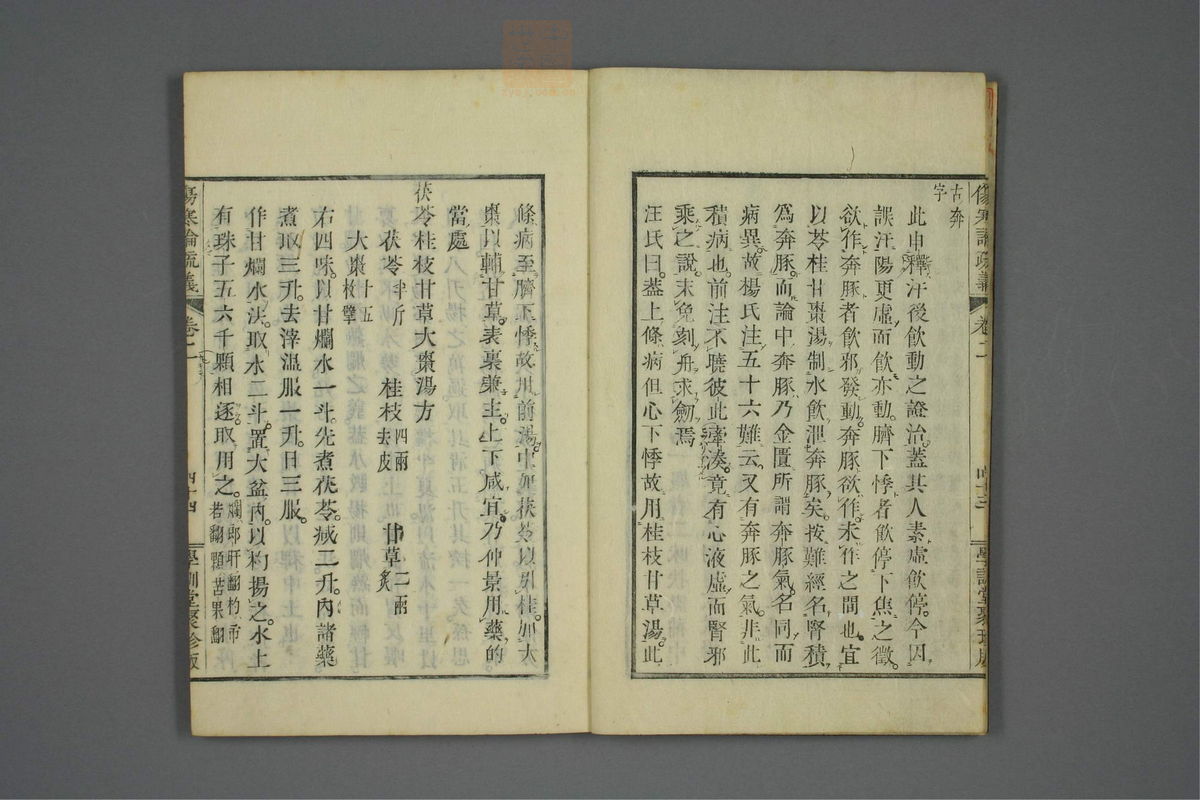 傷寒論疏義 卷二 四十三 學訓堂聚珍版
古奔
字
此申釋汗後飲動之證治。蓋其人素虛飲停。今因
誤汗陽更虛而飲亦動。臍下悸者飲停下焦之徵。
欲作奔豚者飲邪發動奔豚欲作。未作之間也。宜
以苓桂甘棗湯制水飲泄奔豚矣。按難經名腎積
爲奔豚。而論中奔豚乃金匱所謂奔豚氣。名同而
病異。故楊氏注五十六難云。又有奔豚之氣。非此
積病也。前注不曉彼此牽湊。竟有心液虛而腎邪
乘之說。未免刻舟求劒焉
汪氏曰。蓋上條病但心下悸故用桂枝甘草湯。此
條病至臍下悸故用前湯。中加茯苓以別桂。加大
棗以輔甘草。表裏兼主。上下咸宜。乃仲景用藥的
當處
茯苓桂枝甘草大棗湯方
茯苓半斤 桂枝四兩去皮 甘草二兩炙
大棗十五枚擘
右四味。以甘爛水一斗。先煮茯苓。減二升。內諸藥
煮取三升。去滓溫服一升。日三服。
作甘爛水法。取水二斗。置大盆內。以杓揚之。水上
有珠子五六千顆相逐。取用之。爛郎肝翻杓市若翻顆苦果翻
傷寒論疏義 卷二 四十四 學訓堂聚珍版